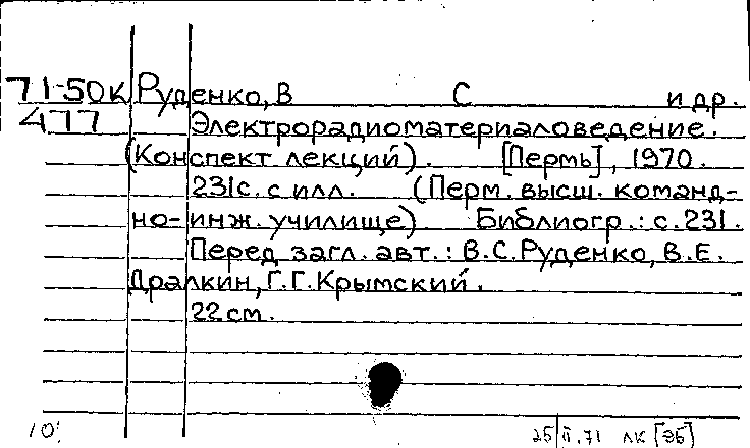 71-50к Руденко, В С и др.
477 Электрорадиоматериаловедение.
(Конспект лекций). [Пермь], 1970.
231с. с илл. (Перм. высш. команд-
но-инж. училище) Библиогр.: с.231.
Перед загл. авт.: В.С.Руденко, В.Е.
Дралкин, Г.Г.Крымский.
22см.
10! 25/II.71 ЛК [ЭБ]